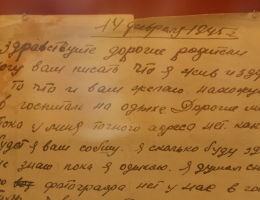 14 февраля 1945 г
Здравствуйте дорогие родители
могу вам писать что я жив и здо
то что и вам желаю нахожу
о госпитал на одыхе Дорогие м
пока у меня точного адреса нет как
будет я вам собщу. я сколько буду зд
не знаю пока я одихаю. я думал сн
фотографа нет у мае в го